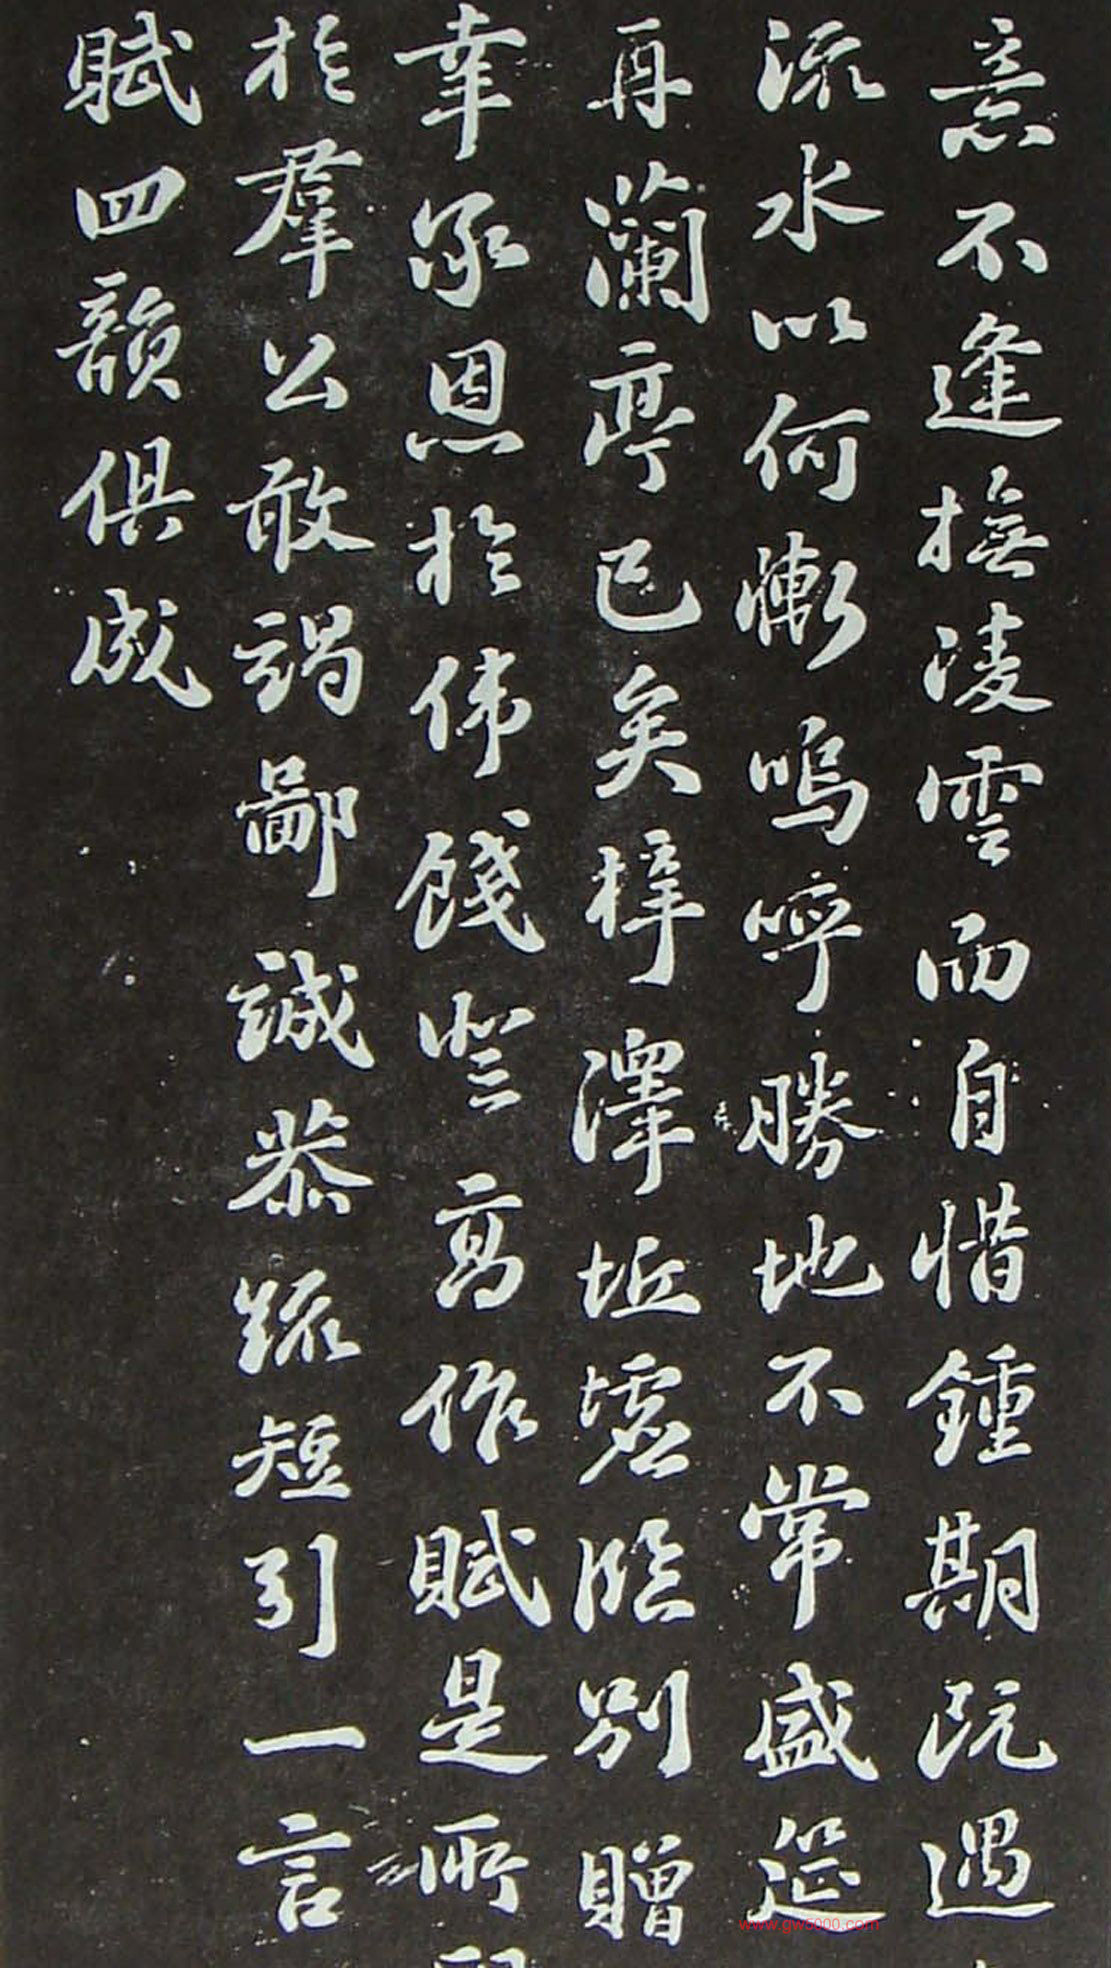 意不逢撫凌雲而自惜鍾期既遇
流水以何慚嗚呼勝地不常盛筵
再蘭亭已矣梓澤坵墟臨別贈
幸承恩於偉餞登高作賦是所
於羣公敢竭鄙誠恭疏短引一言
賦四韻俱成
www.gw5000.com